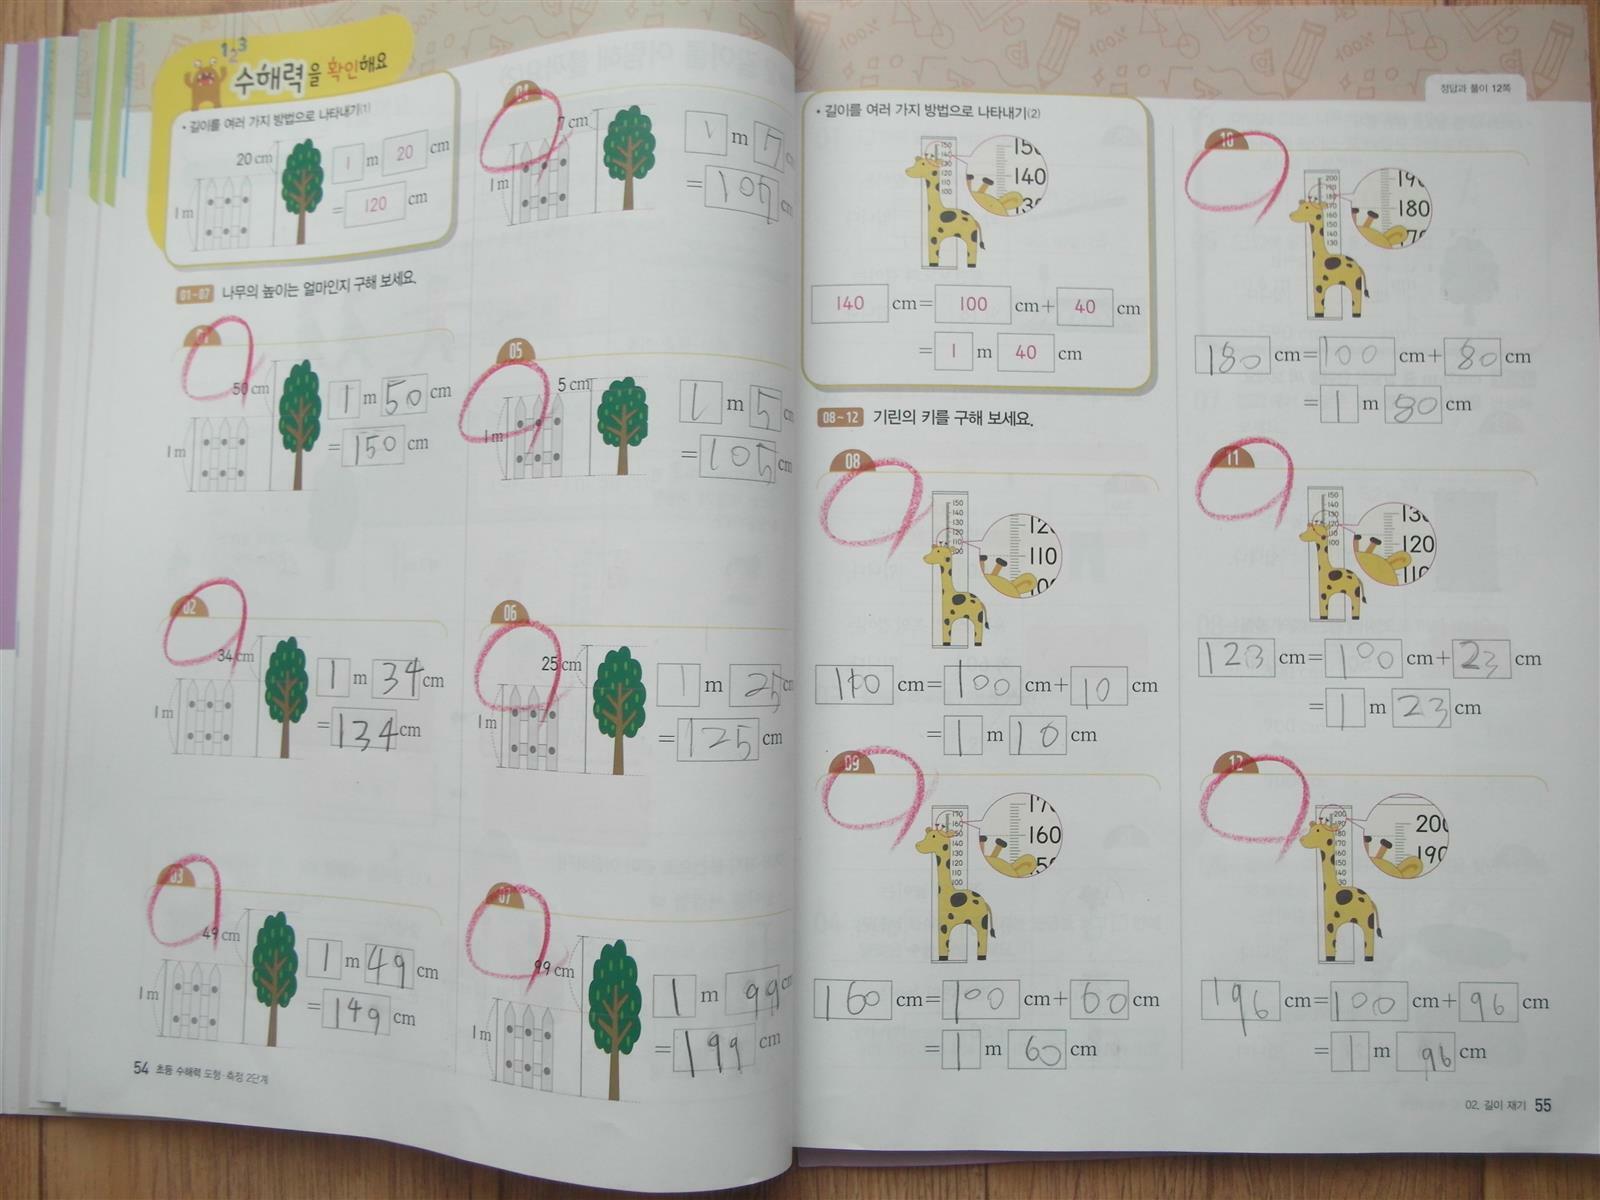 123
수해력을 확인해요
• 길이를 여러 가지 방법으로 나타내기(1)
20 cm
1 m
1 m 20 cm
= 120 cm
01~07 나무의 높이는 얼마인지 구해 보세요.
01
50 cm
1 m
1 m 50 cm
= 150 cm
02
34 cm
1 m
1 m 34 cm
= 134 cm
03
49 cm
1 m
1 m 49 cm
= 149 cm
04
7 cm
1 m
1 m 7
= 107 cm
05
5 cm
1 m
1 m 5
= 105 cm
06
25 cm
1 m
1 m 25 cm
= 125 cm
07
99 cm
1 m
1 m 99 cm
= 199 cm
54 초등 수해력 도형·측정 2단계
정답과 풀이 12쪽
• 길이를 여러 가지 방법으로 나타내기(2)
150
140
130
120
110
100
140
140 cm = 100 cm + 40 cm
= 1 m 40 cm
08~12 기린의 키를 구해 보세요.
08
150
140
130
120
110
110
110 cm = 100 cm + 10 cm
= 1 m 10 cm
09
170
160
150
140
130
120
110
100
160
160 cm = 100 cm + 60 cm
= 1 m 60 cm
10
200
190
180
170
160
150
140
130
180
180 cm = 100 cm + 80 cm
= 1 m 80 cm
11
150
140
130
120
110
100
120
123 cm = 100 cm + 23 cm
= 1 m 23 cm
12
200
190
180
170
160
150
140
190
196 cm = 100 cm + 96 cm
= 1 m 96 cm
02. 길이 재기 55